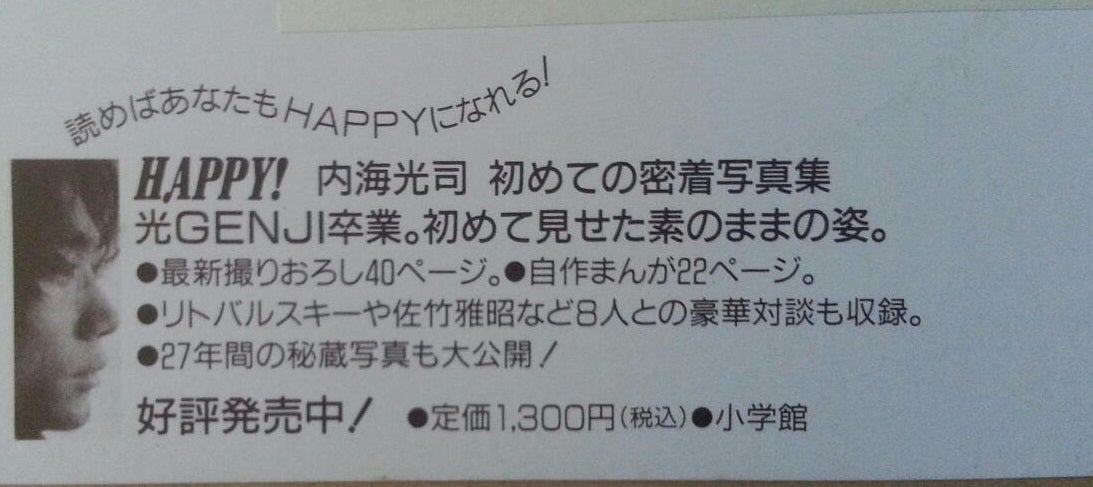 読めばあなたもHAPPYになれる!
HAPPY! 内海光司 初めての密着写真集
光GENJI卒業。初めて見せた素のままの姿。
●最新撮りおろし40ページ。●自作まんが22ページ。
●リトバルスキーや佐竹雅昭など8人との豪華対談も収録。
●27年間の秘蔵写真も大公開!
好評発売中! ●定価1,300円(税込)●小学館